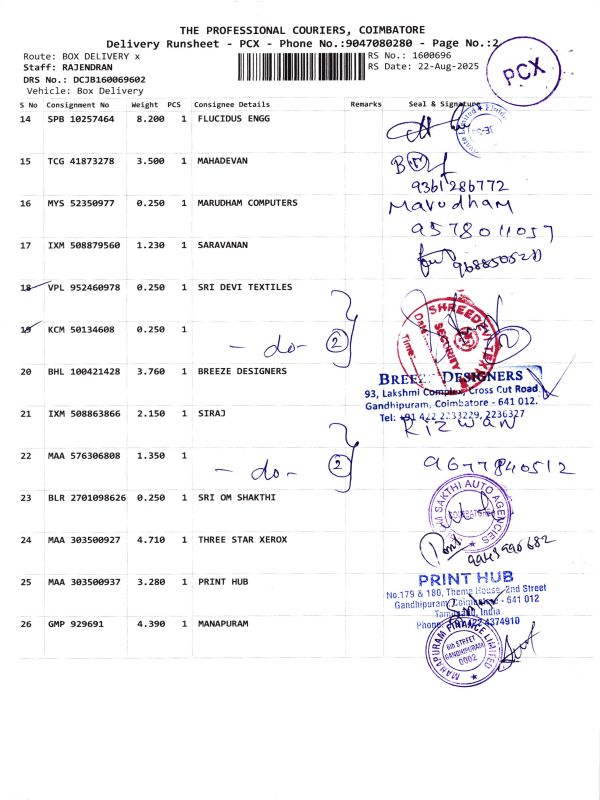 THE PROFESSIONAL COURIERS, COIMBATORE
Delivery Runsheet - PCX - Phone No.:9047080280 - Page No.:2
Route: BOX DELIVERY x
RS No.: 1600696
Staff: RAJENDRAN
RS Date: 22-Aug-2025
DRS No.: DCJB160069602
Vehicle: Box Delivery
PCX
S No Consignment No Weight PCS Consignee Details Remarks Seal & Signature
14 SPB 10257464 8.200 1 FLUCIDUS ENGG
15 TCG 41873278 3.500 1 MAHADEVAN
9361286772
16 MYS 52350977 0.250 1 MARUDHAM COMPUTERS Marudham
9578011057
17 IXM 508879560 1.230 1 SARAVANAN
18 VPL 952460978 0.250 1 SRI DEVI TEXTILES
SHREEDEVI TEXTILE
Date:
Time:
SECURITY
19 KCM 50134608 0.250 1
- do - 2
20 BHL 100421428 3.760 1 BREEZE DESIGNERS
BREEZE DESIGNERS
93, Lakshmi Complex, Cross Cut Road
Gandhipuram, Coimbatore - 641 012.
Tel: +91 422 2233229, 2236327
21 IXM 508863866 2.150 1 SIRAJ Rizwan
22 MAA 576306808 1.350 1 9677840512
- do - 2
23 BLR 2701098626 0.250 1 SRI OM SHAKTHI
SAKTHI AUTO AGENCIES
24 MAA 303500927 4.710 1 THREE STAR XEROX
25 MAA 303500937 3.280 1 PRINT HUB
PRINT HUB
No.179 & 180, Theme House, 2nd Street
Gandhipuram, Coimbatore - 641 012
Tamilnadu, India
Phone: 0422 4374910
26 GMP 929691 4.390 1 MANAPURAM
MANAPURAM FINANCE LIMITED
6th STREET
GANDHIPURAM
0002